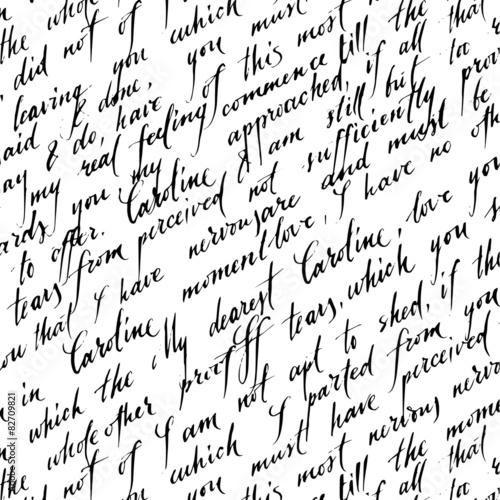 the whole of which must the that
did not of I you most
leaving you this most till the
said & done, have of commence if all to
my real feeling approached, still but
you my & am sufficiently prov
to offer. Caroline not and must be
tears from perceived nervous are I have no oth
that I have moment love,
Caroline My dearest Caroline, love you
in which the proof tears, which you s
the whole other not apt to shed, if the
did not of I am I parted from you
which must have perceived
you this most nervous nervo
till the mome
all that
82709821